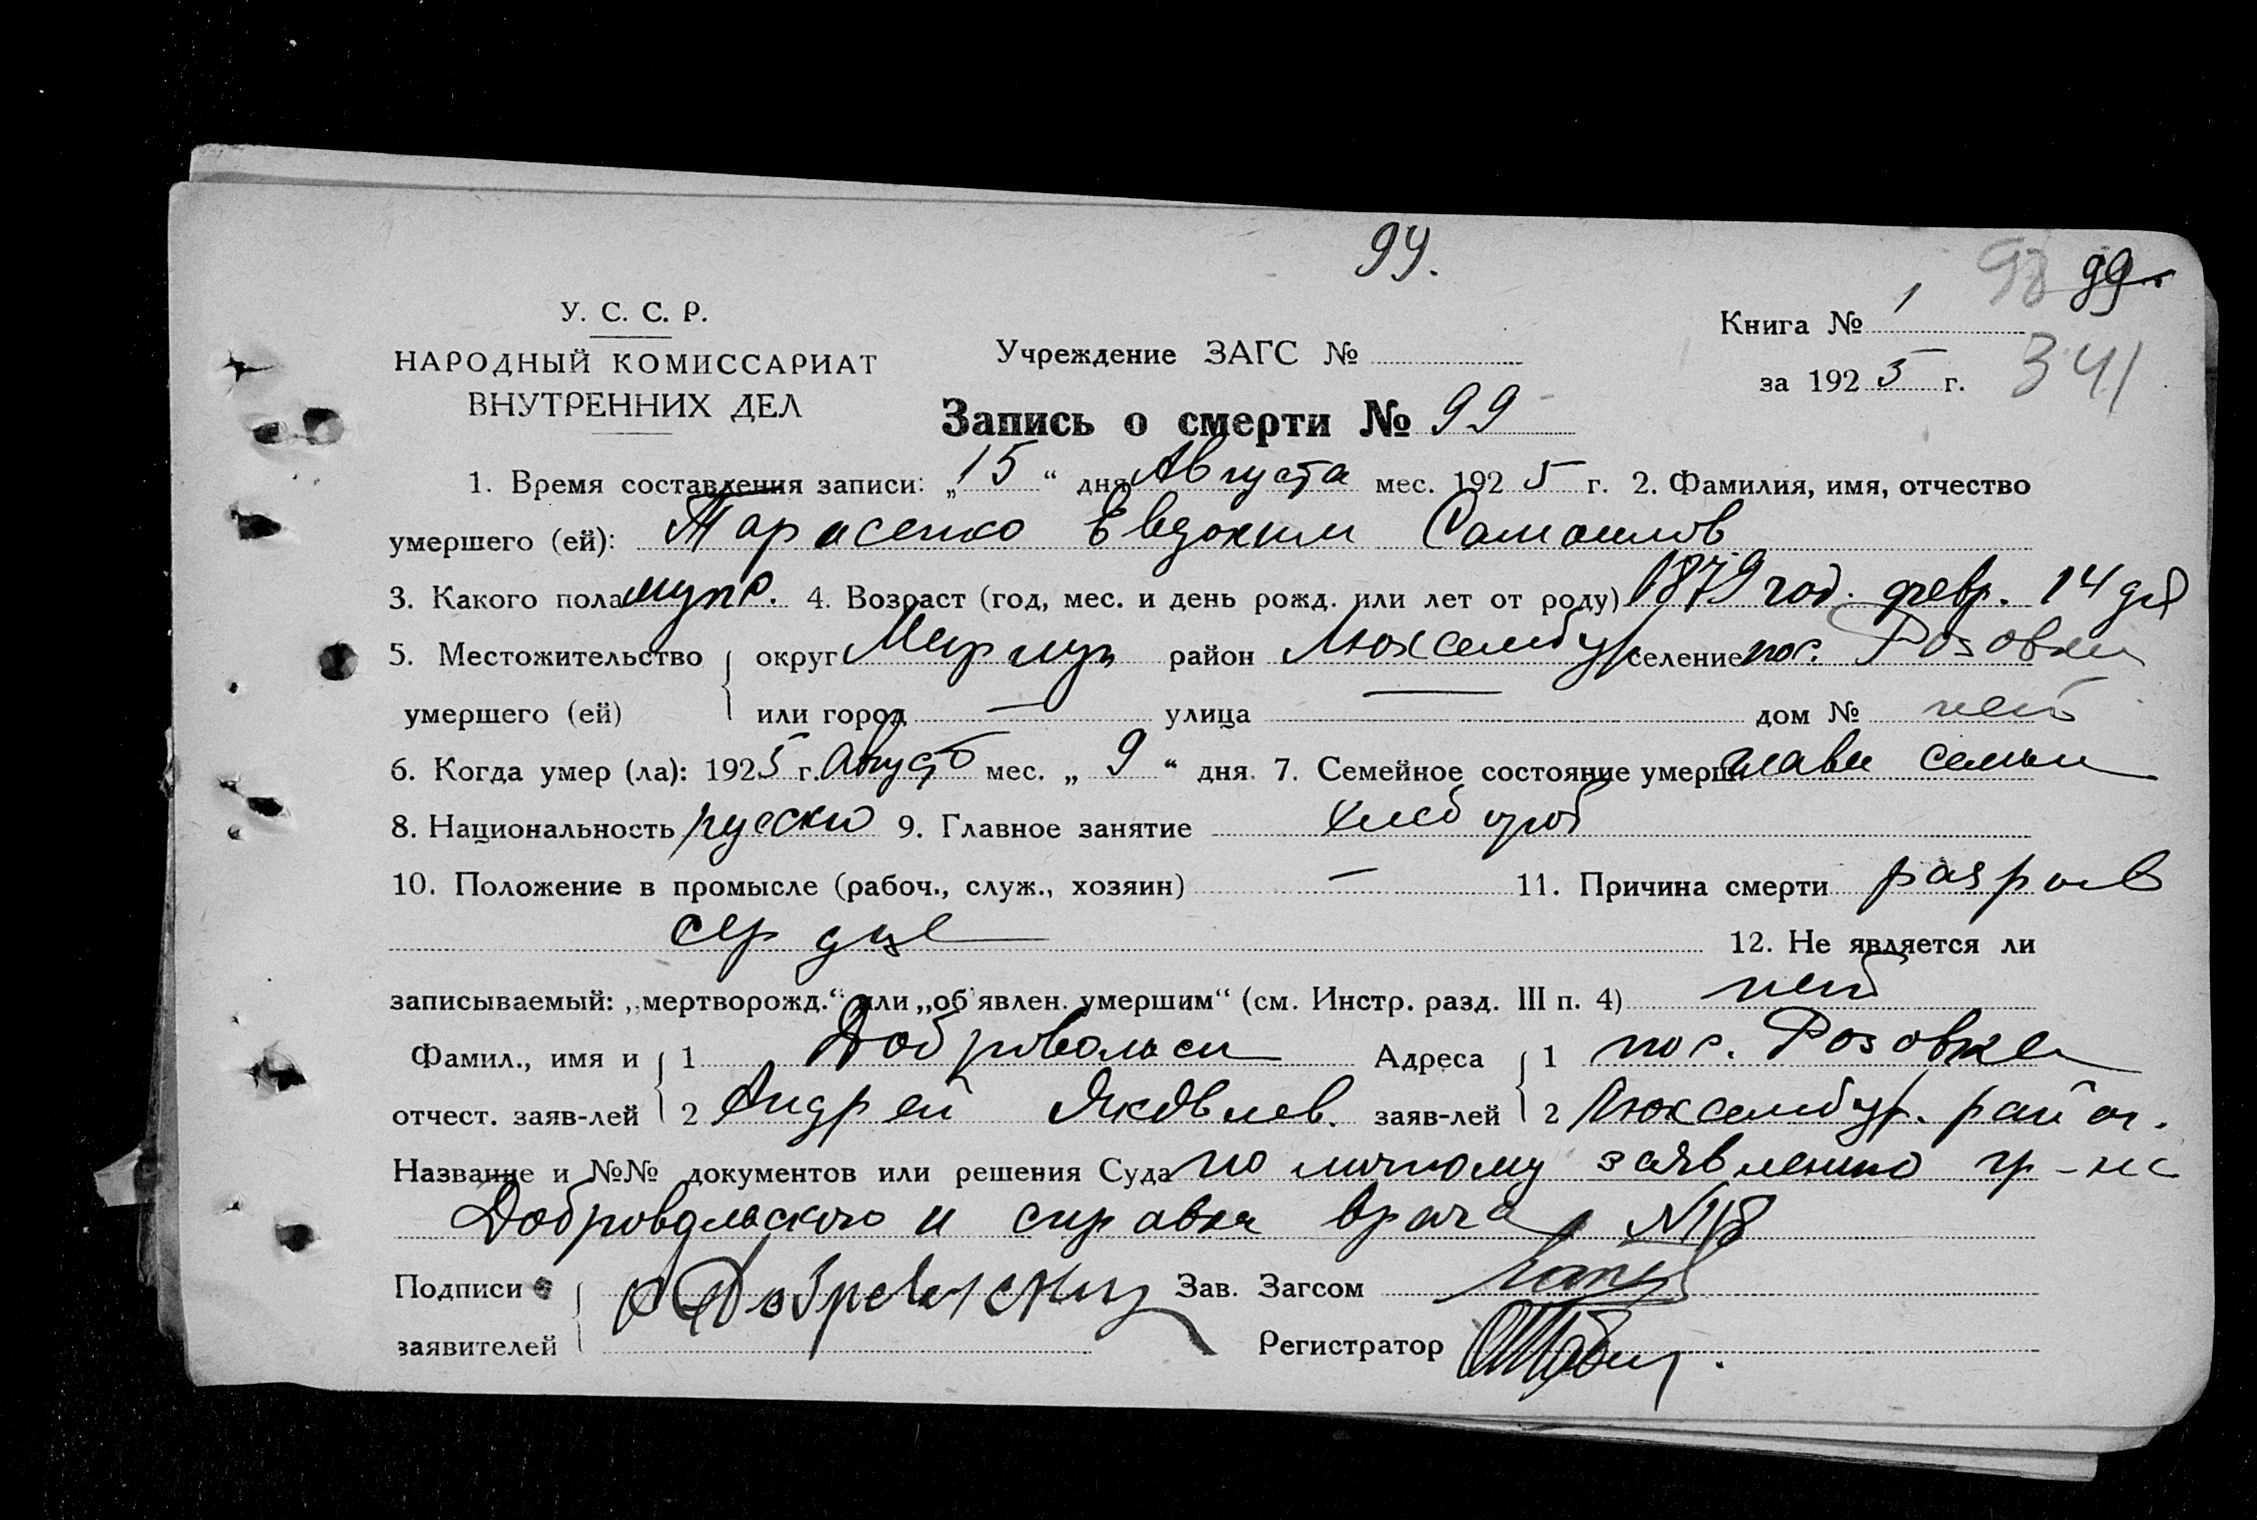 99.
98 99
У. С. С. Р.
НАРОДНЫЙ КОМИССАРИАТ
ВНУТРЕННИХ ДЕЛ
Учреждение ЗАГС №
Книга № 1
за 1925 г.
341
Запись о смерти № 99
1. Время составления записи: „15“ дня Августа мес. 1925 г. 2. Фамилия, имя, отчество
умершего (ей): Тарасенко Евдоким Самоилов
3. Какого пола муж. 4. Возраст (год, мес. и день рожд. или лет от роду) 1879 год. февр. 14 дня
5. Местожительство округ Мариуп район Люксембур селение пос. Розовка
умершего (ей) или город — улица — дом № нет
6. Когда умер (ла): 1925 г. август мес. „9“ дня. 7. Семейное состояние умерш. глава семьи
8. Национальность русско 9. Главное занятие хлебороб
10. Положение в промысле (рабоч., служ., хозяин) — 11. Причина смерти разрыв
сердце 12. Не является ли
записываемый: „мертворожд.“ или „об'явлен. умершим“ (см. Инстр. разд. III п. 4) нет
Фамил., имя и 1 Добровольск Адреса 1 пос. Розовка
отчест. заяв-лей 2 Андрей Яковлев. заяв-лей 2 Люксембур. район.
Название и №№ документов или решения Суда по личному заявлению гр-на
Добровольского и справка врача N 118
Подписи Зав. Загсом
заявителей Регистратор